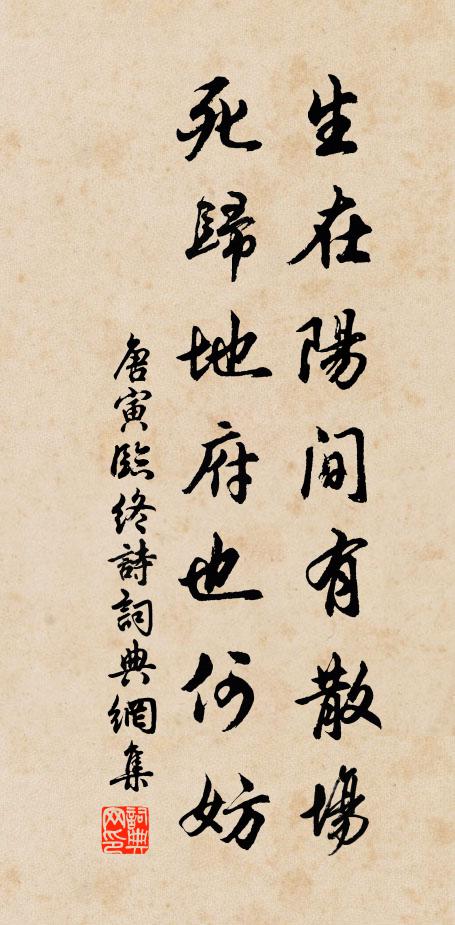 生在陽間有散場
死歸地府也何妨
唐寅臨終詩詞典網集
詞典网印